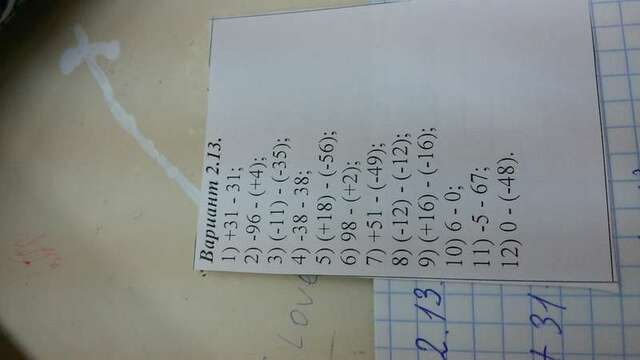 Вариант 2.13.
1) +31 - 31;
2) -96 - (+4);
3) (-11) - (-35);
4) -38 - 38;
5) (+18) - (-56);
6) 98 - (+2);
7) +51 - (-49);
8) (-12) - (-12);
9) (+16) - (-16);
10) 6 - 0;
11) -5 - 67;
12) 0 - (-48).
Love
2.13
+ 31